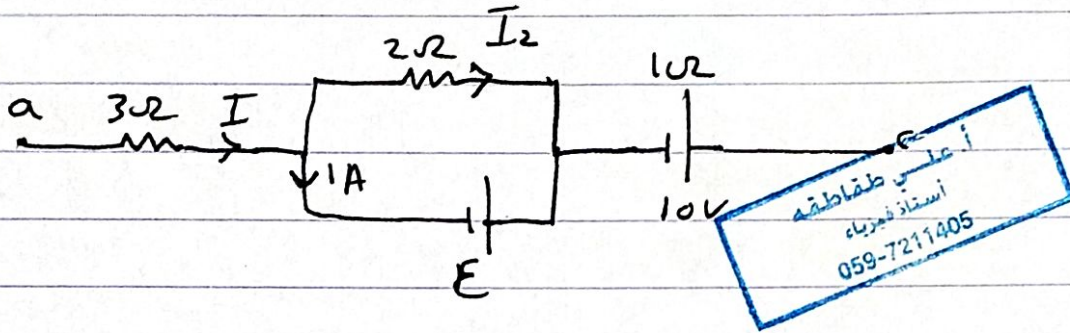 2Ω I₂
a 3Ω I
1A
E
1Ω
10V
أ. علي طقاطقه
أستاذ فيزياء
059-7211405